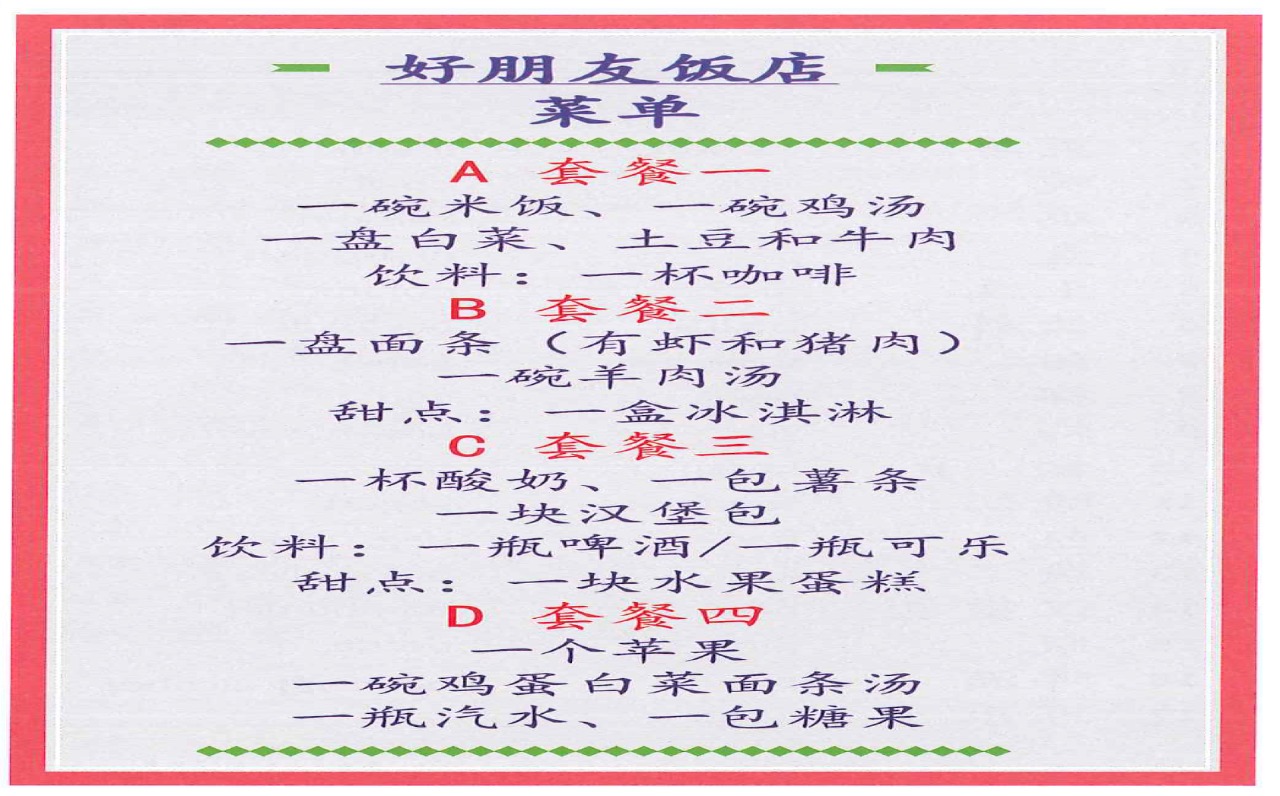 好朋友饭店
菜单
A 套餐一
一碗米饭、一碗鸡汤
一盘白菜、土豆和牛肉
饮料：一杯咖啡
B 套餐二
一盘面条（有虾和猪肉）
一碗羊肉汤
甜点：一盒冰淇淋
C 套餐三
一杯酸奶、一包薯条
一块汉堡包
饮料：一瓶啤酒/一瓶可乐
甜点：一块水果蛋糕
D 套餐四
一个苹果
一碗鸡蛋白菜面条汤
一瓶汽水、一包糖果